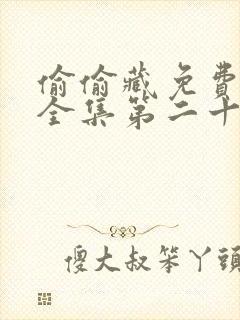 偷偷藏免費
全集第二十
傻大叔笨丫頭